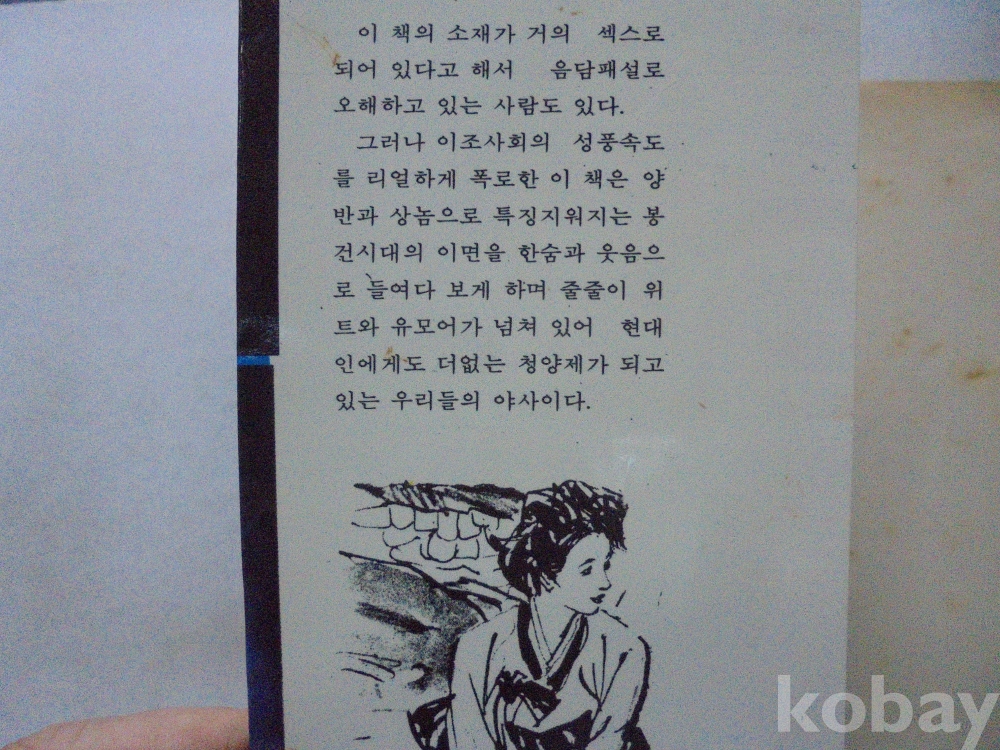 이 책의 소재가 거의 섹스로
되어 있다고 해서 음담패설로
오해하고 있는 사람도 있다.
그러나 이조사회의 성풍속도
를 리얼하게 폭로한 이 책은 양
반과 상놈으로 특징지워지는 봉
건시대의 이면을 한숨과 웃음으
로 들여다 보게 하며 줄줄이 위
트와 유모어가 넘쳐 있어 현대
인에게도 더없는 청양제가 되고
있는 우리들의 야사이다.
kobay